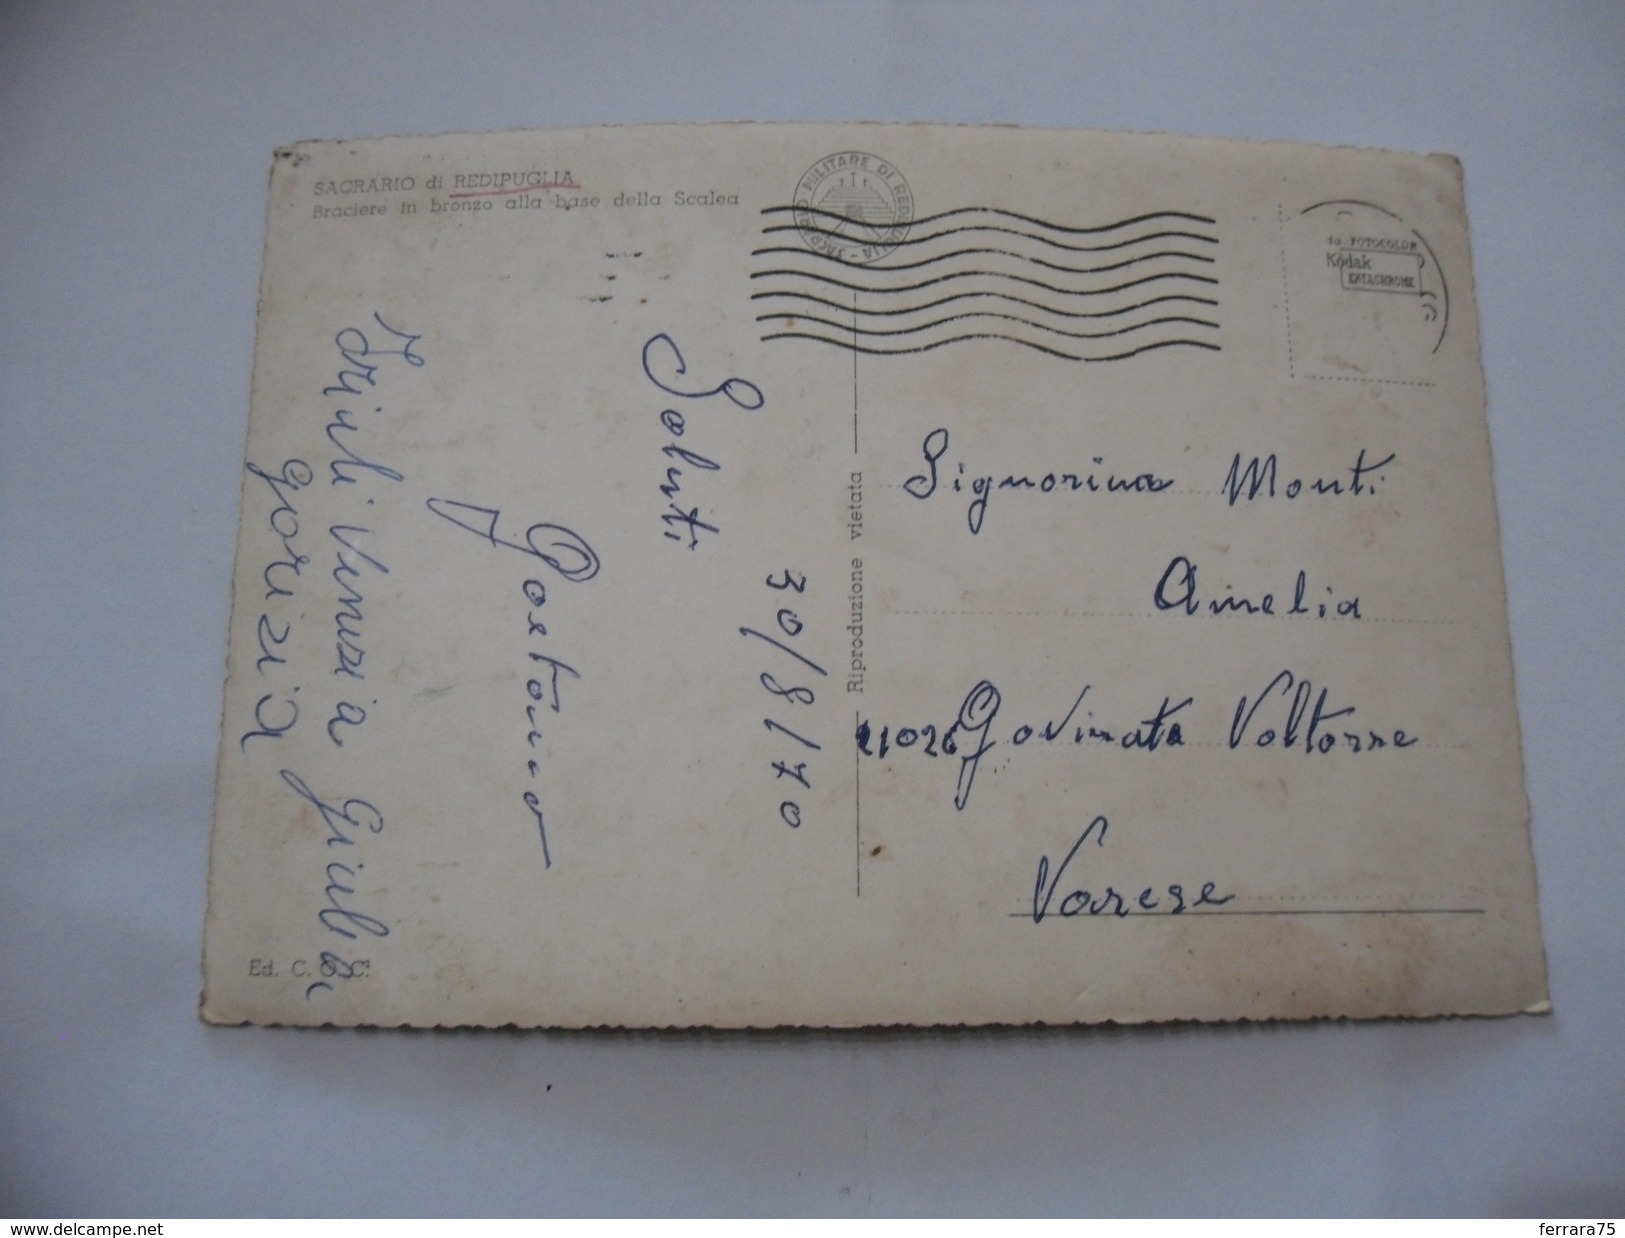 SACRARIO di REDIPUGLIA
Braciere in bronzo alla base della Scalea
SACRARIO MILITARE DI REDIPUGLIA
da FOTOCOLOR
Kodak
EKTACHROME
30/8/70
Saluti
Gaetano
Friuli Venezia Giulia
Gorizia
Riproduzione vietata
Signorina Monti
Amelia
21026 Gavirate Voltorre
Varese
Ed. C.
www.delcampe.net
ferrara75